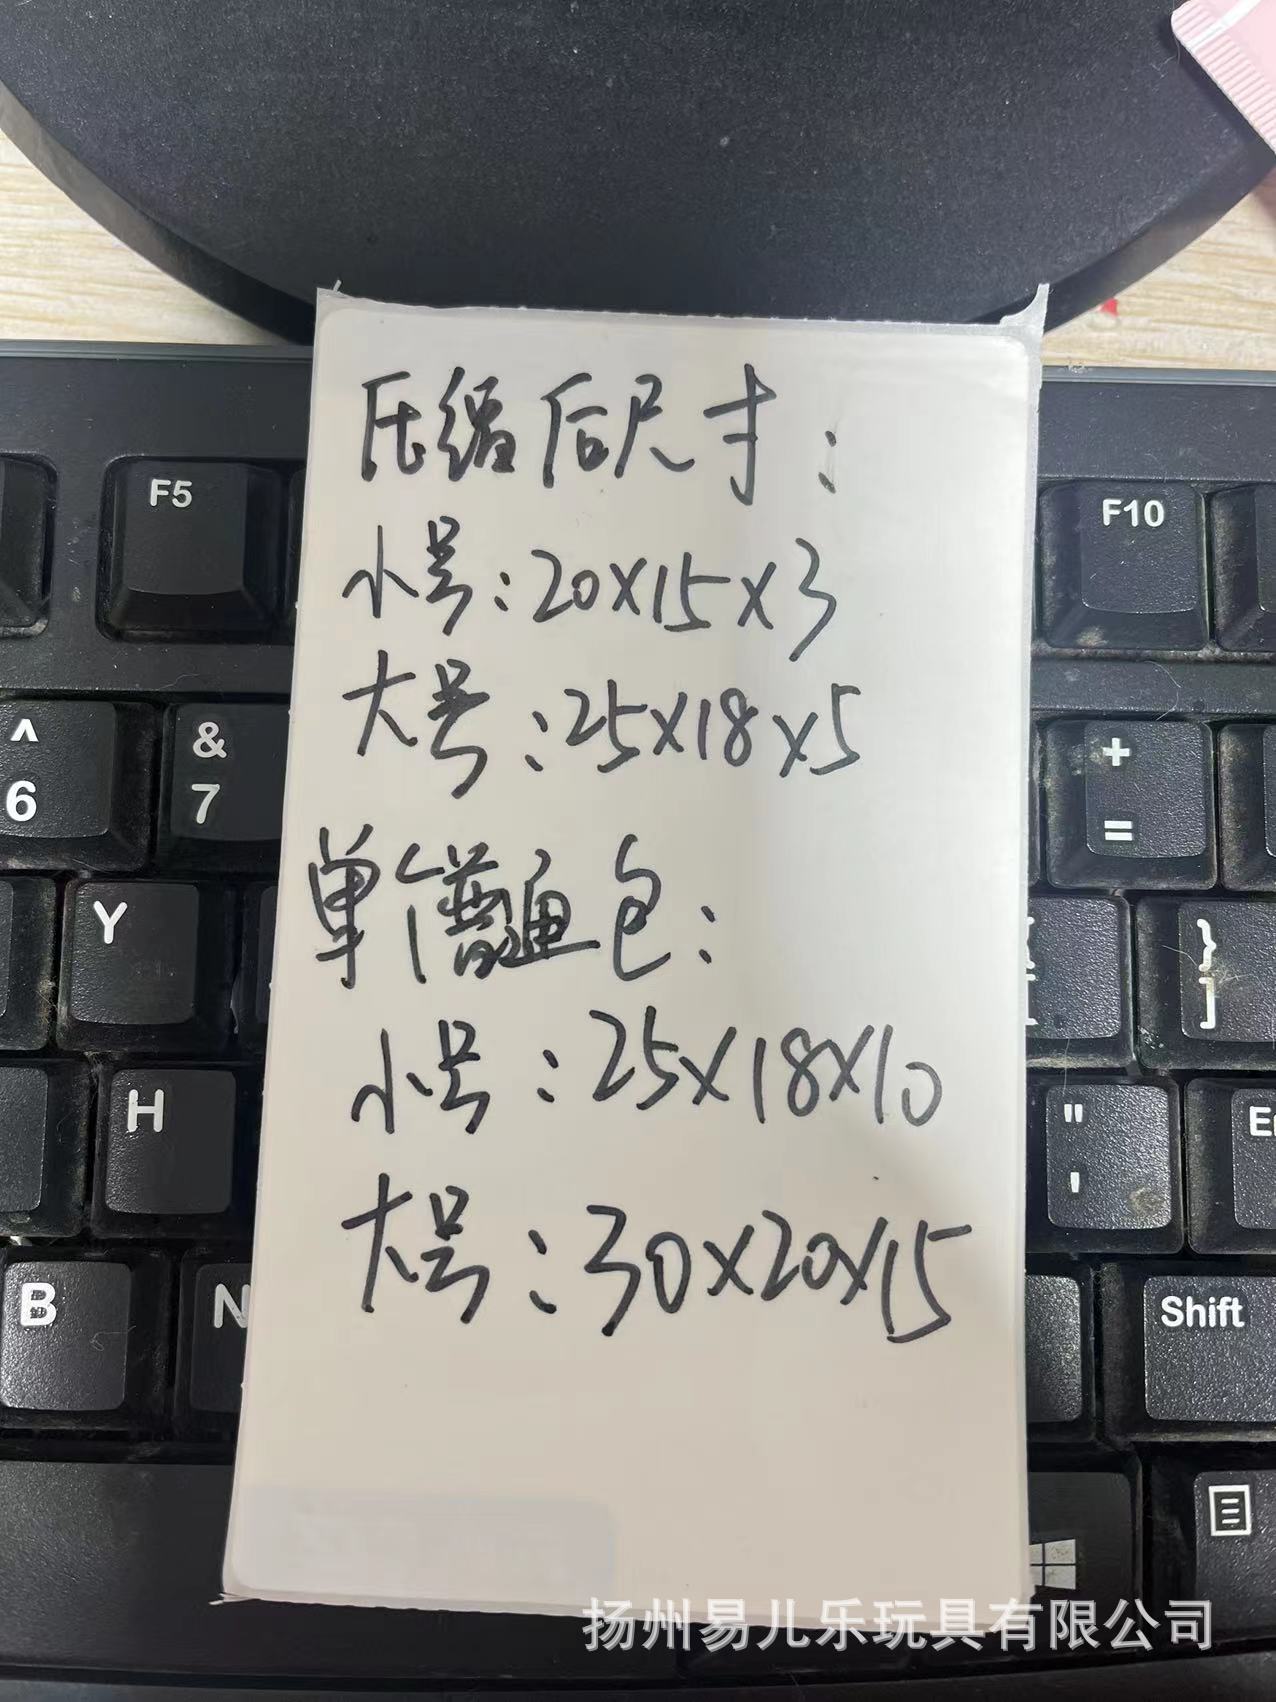 压缩后尺寸:
小号:20x15x3
大号:25x18x5
单个鳐鱼包:
小号:25x18x10
大号:30x20x15
F5
F10
^
6
&
7
+
=
Y
}
]
H
"
'
B
N
Shift
扬州易儿乐玩具有限公司